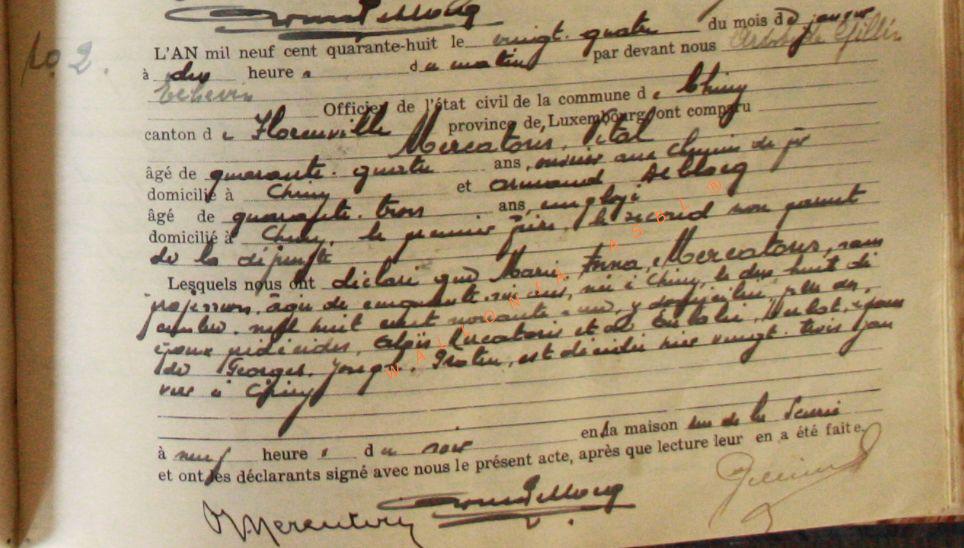 No 2.
L'AN mil neuf cent quarante-huit le vingt-quatre du mois de janvier
à dix heures du matin par devant nous Gillin
Echevin
Officier de l'état civil de la commune de Chiny
canton de Florenville province de Luxembourg ont comparu
Mercatoris, Vital
âgé de quarante-quatre ans, ouvrier aux chemins de fer
domicilié à Chiny et Armand Deblocq
âgé de quarante-trois ans, employé
domicilié à Chiny, le premier frère, le second non parent
de la défunte
Lesquels nous ont déclaré que Marie Anna Mercatoris, sans
profession, âgée de cinquante-six ans, née à Chiny, le dix-huit dé
cembre mil huit cent nonante-une, y domiciliée, fille des
époux prédécédés, Mercatoris et de Hubot, épouse
de Georges, Joseph, est décédée hier vingt-trois jan
vier à Chiny
à neuf heures du soir en la maison rue de la Scierie
et ont les déclarants signé avec nous le présent acte, après que lecture leur en a été faite.
WALLONIA ASBL